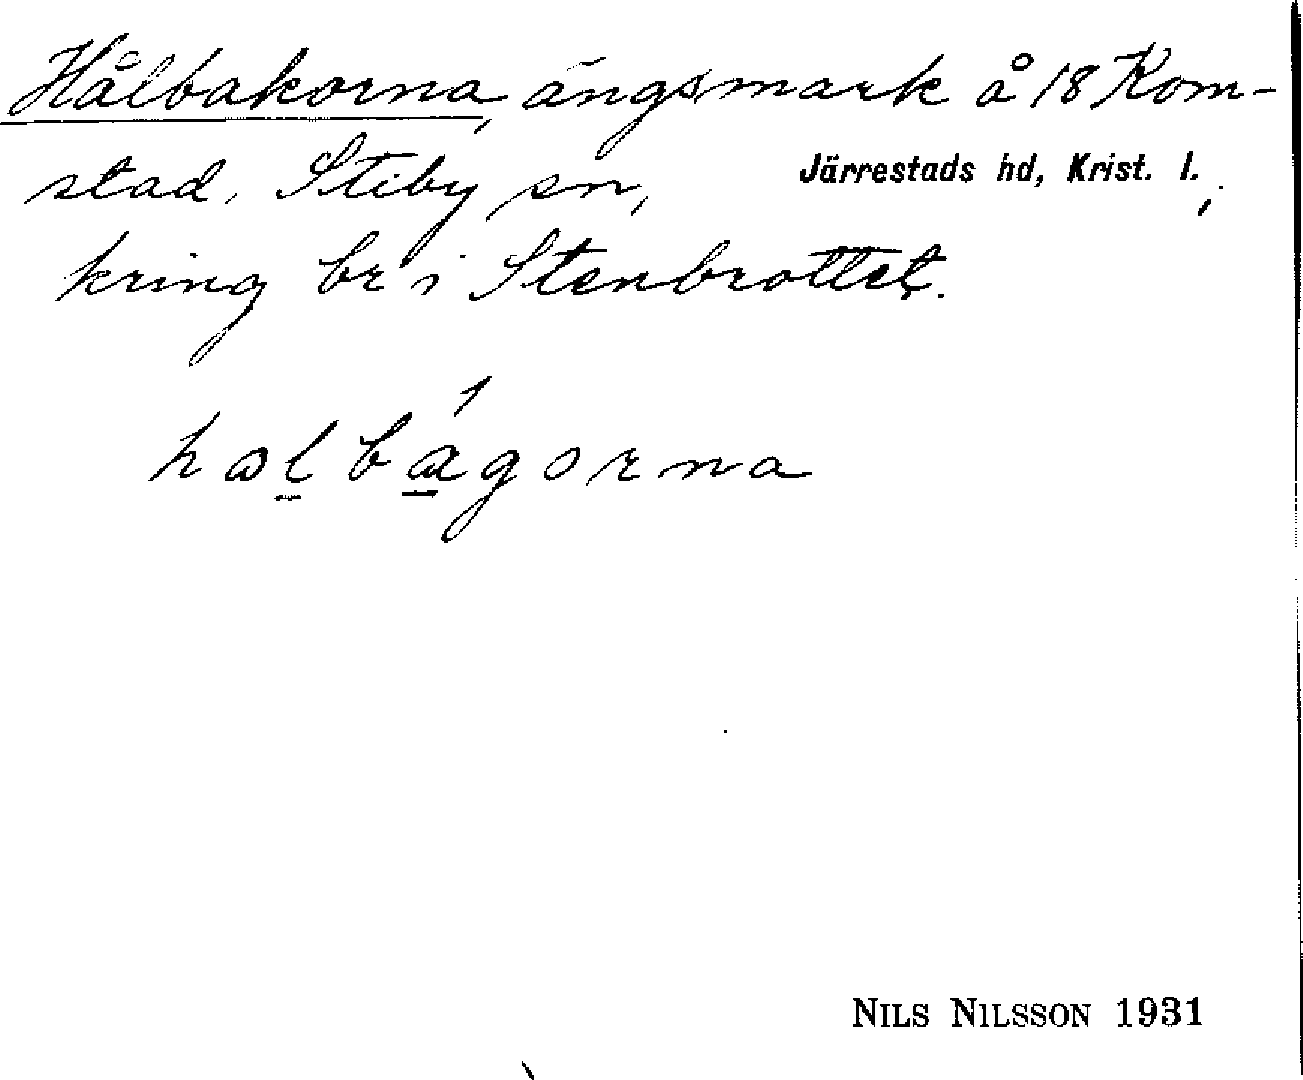 Hålbakorna, ängsmark å 18 Kom-
stad, Stiby sn, Järrestads hd, Krist. l.,
kring br i Stenbrottet.
hɷl̲bɑ̲́gorna
NILS NILSSON 1931